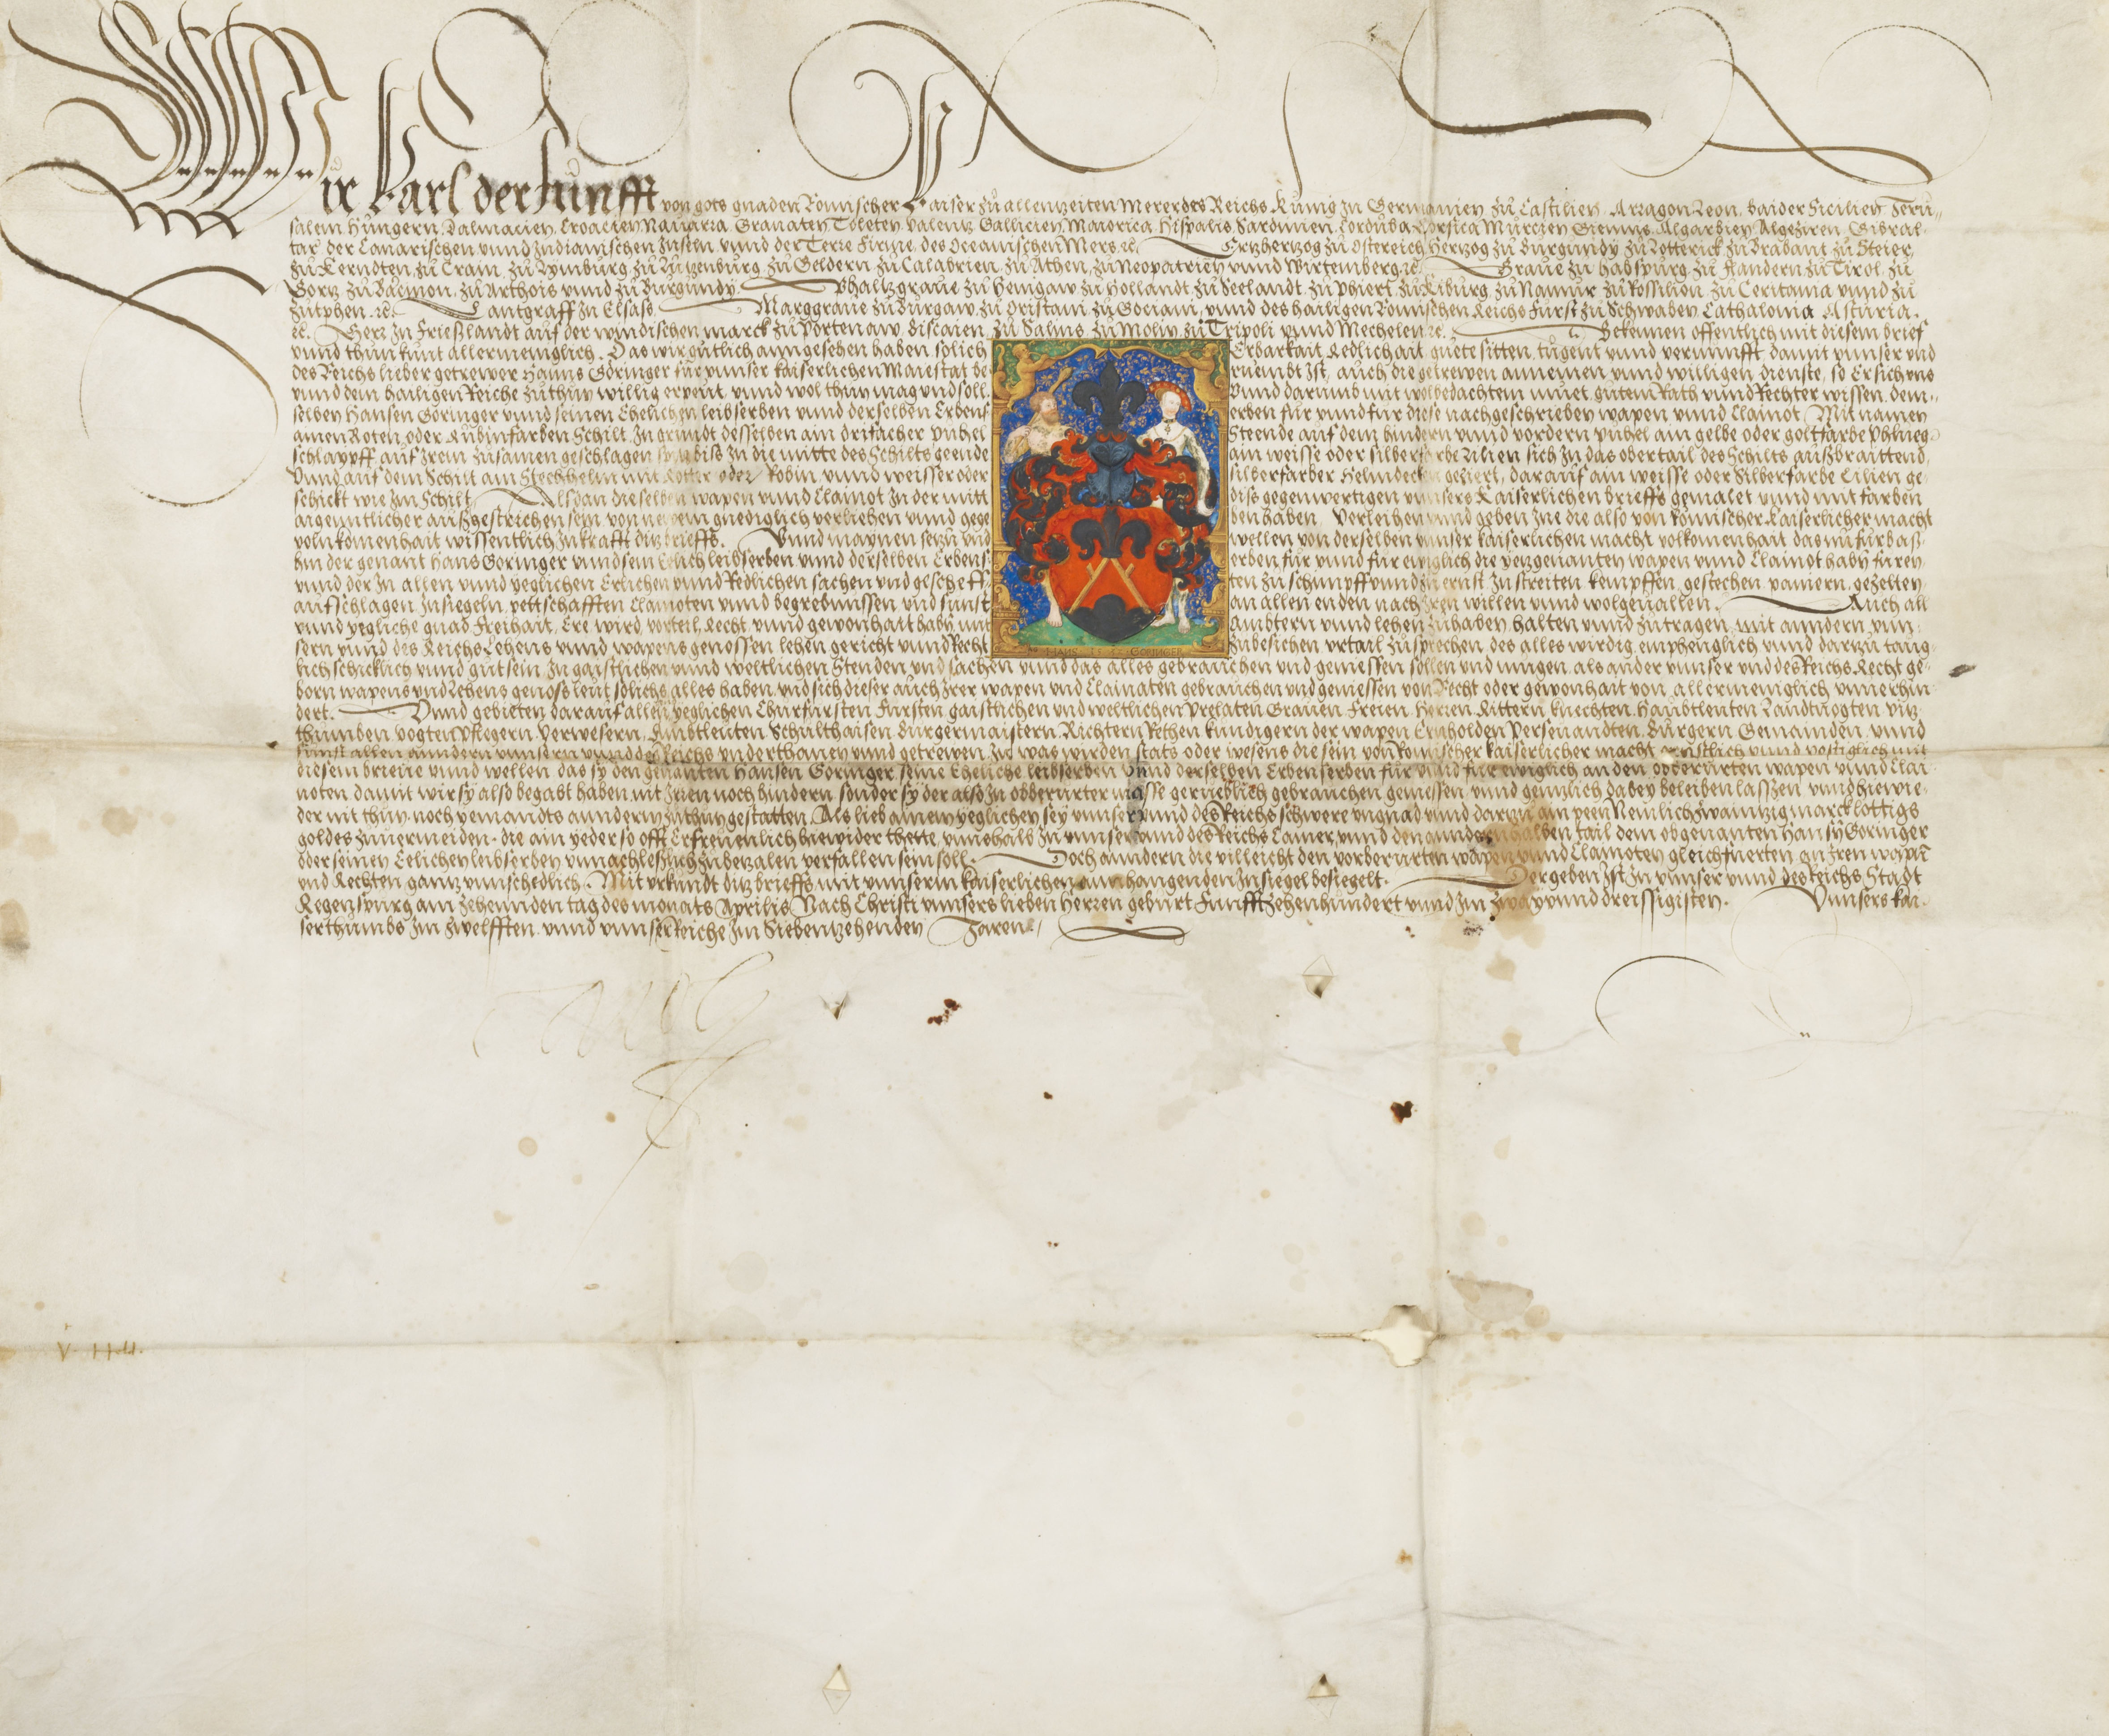 Wir Karl der Funfft von gots gnaden Römischer Kaiser zů allenzeiten Mererdes Reichs Kunig zu Germanien zů Castilien Arragon Leon baider Sicilien Jeru-
salem Hungern Dalmacien Croacien Nauarra Granaten Toleten Valentz Gallicien Maiorica Hispalis Sardinien Corduba Corsica Murczien Giennis Algarbien Algeziren Gibral-
tar der Canarischen vnnd Indianischen Inseln vnnd der Terre Firme des Oceanischen Mers ꝛc. Ertzhertzog zů Ostereich Hertzog zů Burgundy zů Lotterick zů Brabant zů Steier
zů Kerndten zů Crain zů Lymburg zů Lutzenburg zů Geldern zů Calabrien zů Athen zů Neopatrien vnnd Wirtemberg ꝛc. Graue zů Habspurg zů Flandern zů Tirol zů
Gortz zů Barcinon zů Arthois vnnd zů Burgundy Phaltzgraue zů Henigaw zů Hollandt zů Seelandt zů Phiert zů Kiburg zů Namur zů Rossilien zů Ceritania vnnd zů
zutphen ꝛc. Lantgraff zu Elsass Marggraue zů Burgaw zů Oristani zů Gociani vnnd des hailigen Römischen Reichs Furst zů Schwaben Cathalonia Asturia
ꝛc. Herr zu Frießlandt auf der windischen marck zů Portenaw Biscaien zů Salins zů Molin zů Tripoli vnnd Mechelen ꝛc. Bekennen offentlich mit diesem brief
vnnd thun kunt allermeniglich. Das wir gutlich anngesehen haben solich Erbarkait Redlichait guete sitten tugent vnnd vernunfft damit vnnser vnd
des Reichs lieber getrewer Hanns Göringer fur vnnser kaiserlichen Maiestat be ruembt ist auch die getrewen annemen vnnd willigen dienste so Er sich vns
vnnd dem hailigen Reiche zuthun willig erpeut vnnd wol thun mag vnd soll. Vnnd darumb mit wolbedachtem muet gutem Rath vnnd Rechter wissen dem-
selben Hansen Göringer vnnd seinen Ehelichen leibserben vnnd derselben Erbens erben fur vnnd fur diese nachgeschrieben wapen vnnd Clainot Mit namen
ainen Roten oder Rubinfarben Schilt Zu grundt desselben ain drifacher puhel Steende auf dem hindern vnnd vordern puhel ain gelbe oder goltfarbe Phlueg
schlaypff auf Irem zusamen geschlagen bisz in die mitte des Schilts geende ain weisse oder silberfarbe Lilien sich in das obertail des Schilts außbraittend
Vnnd auf dem Schilt ain Stechhelm mit Rotter oder Robin vnnd weisser oder silberfarber Helmdecken geziert darauf ain weisse oder Silberfarbe Lilien ge
schickt wie im Schilt Als dan dieselben wapen vnnd Clainot in der mitt dise gegenwertigen vnnsers Kaiserlichen brieffs gemalet vnnd mit farben
aigenntlicher außgestrichen sein von newem gnediglich verliehen vnnd gege ben haben Verleihen vnnd geben Ine die also von Römischer Kaiserlicher macht
volnkomenhait wissentlich in krafft ditz brieffs. Vnnd maynen setzn vnd wellen von derselben vnnser kaiserlichen macht volkomenhait das nu fur bas
hin der genant Hans Goringer vnnd sein Elich leibserben vnnd derselben Erbens erben fur vnnd fur ewiglich die yetzgenanten wapen vnnd Claindt haben furen
vnnd der in allen vnnd yeglichen Erlichen vnnd Redlichen sachen vnd gescheff- ten zu schimpff vnnd zu ernst in streiten kempffen gestechen paniern gezelten
aufschlagen insiegeln pettschafften Clainoten vnnd begrebnussen vnd sunst an allen enden nach Iren willen vnnd wolgeuallen. Auch all
vnnd yegliche gnad Freihait Ere wird vorteil Recht vnnd gewonhait haben mit ambtern vnnd lehen zuhaben halten vnnd zutragen mit anndern vnn-
sern vnnd des Reichs Lehens vnnd wapens genossen lehen gericht vnnd Recht zubesichen vrtail zusprechen des alles wirdig emphenglich vnnd darzu taug-
lich schicklich vnnd gut sein in gaistlichen vnnd weltlichen Stenden vnd sachen vnnd das alles gebrauchen vnd geniessen sollen vnd mugen als ander vnnser vnd des Reichs Recht ge-
born wapens vnd Lehens genoss leut solichs alles haben vnd sich dieser auch Irer wapen vnd Clainaten gebrauchen vnd geniessen von Recht oder gewonhait von allermeniglich vnnerhin
dert. Vnnd gebieten darauf allen yeglichen Churfursten Fursten gaistlichen vnd weltlichen Prelaten Grauen Freien Herren Rittern knechten Haubtleuten Landtuogten vitz-
thumben vogten Pflegern Verwesern Ambtleuten Schulthaisen Burgermaistern Richtern Rethen kundigern der wapen Ernholden Perseuandten Burgern Gemainden vnnd
sunst allen anndern vnnsern vnnd des Reichs vnderthanen vnnd getrewen in was wirden stats oder wesens die sein von Römischer kaiserlicher macht ernstlich vnnd vestiglich mit
diesem brieue vnnd wellen das sy den genanten Hansen Goringer seine Eheliche leibserben vnnd derselben Erbenserben fur vnnd fur ewiglich an den obberurten wapen vnnd Clai-
noten damit wir sy also begabt haben nit Irren noch hindern sonder sy der also in obberurter masse geruehlich gebrauchen geniessen vnnd gentzlich dabey beleiben lassen vnnd hiewie-
der nit thun noch yemandts anndern zuthun gestatten Als lieb ainem yeglichen sey vnnser vnnd des Reichs schwere vngnad vnnd darzu ain peen Nemlich zwaintzig marck lottigs
goldes zuuermeiden. die ain yeder so offt Er freuenlich hiewider thette vnns halb in vnnser vnnd des Reichs Camer vnnd den anndern halben tail dem obgenanten Hansen Goringer
oder seinen Eelichen leibserben vnnachleßlich zubetzalen verfallen sein soll. Doch anndern die villeicht den vorberurten wapen vnnd Clainoten gleich fuerten an Iren wapen
vnd Rechten gantz vnnschedlich. Mit vrkundt ditz brieffs mit vnnserm kaiserlichen annhangenden Insiegel besiegelt. Der geben ist in vnnser vnnd des Reichs Stadt
Regenspurg am zehennden tag des monats Aprilis Nach Christi vnnsers lieben Herren geburt Funfftzehenhundert vnnd im zway vnnd dreissigisten. Vnnsers kai-
serthumbs im zwelfften vnnd vnnser Reiche im Siebentzehenden Jaren.
HANS 15 GORINGER
Carol